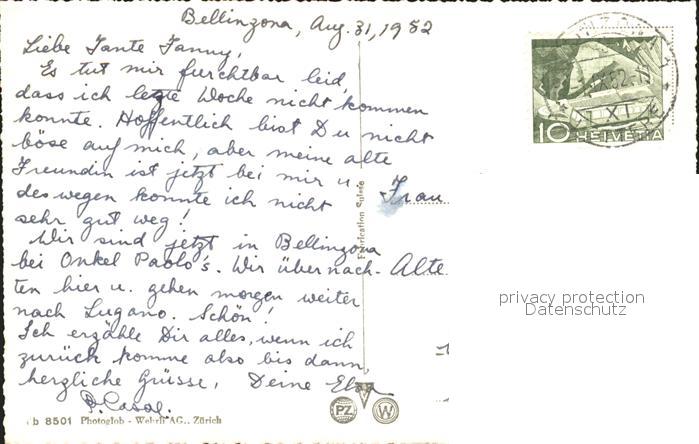 Bellinzona, Aug. 31, 1952
Liebe Tante Fanny,
Es tut mir furchtbar leid,
dass ich letzte Woche nicht kommen
konnte. Hoffentlich bist Du nicht
böse auf mich, aber meine alte
Freundin ist jetzt bei mir u.
deswegen konnte ich nicht
sehr gut weg!
Wir sind jetzt in Bellinzona
bei Onkel Paolo's. Wir übernach-
ten hier u. gehen morgen weiter
nach Lugano. Schön!
Ich erzähle Dir alles, wenn ich
zurück komme also bis dann
herzliche Grüsse, Deine Elsa
Frau
Alte
Fabrication Suisse
10 HELVETIA
privacy protection
Datenschutz
b 8501 Photoglob - Wehrli AG., Zürich
PZ W